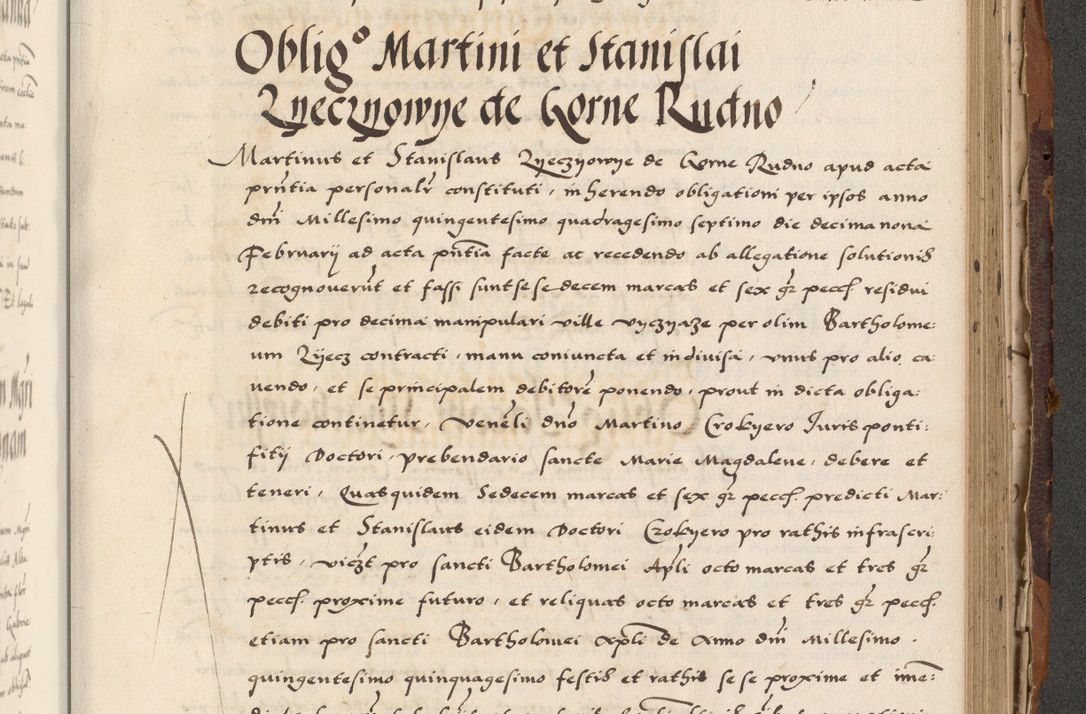 Obligº Martini et Stanislai
Zyeczyowye de Gorne Rudno
Martinus et Stanislaus Zyeczyowye de Gorne Rudno apud acta
prñtia personalr̃ constituti, inherendo obligationi per ipsos anno
dnĩ Millesimo quingentesimo quadragesimo septimo die decimanona
Februarij ad acta pñtia facte ac recedendo ab allegatione solutionis
recognoverũt et fassi sunt se sedecem marcas et sex gr̃ pecc̃ residui
debiti pro decima manipulari ville per olim Bartholome:
um Zijecz contracti, manu coniuncta et indivisa, unus pro alio ca
vendo, et se principalem debitorẽ ponendo, prout in dicta obliga:
tione continetur, Venẽli dnõ Martino Crokyero Juris ponti:
fitij Doctori, prebendario sancte Marie Magdalene, debere et
teneri, Quasquidem Sedecem marcas et sex gr̃ pecc̃. predicti Mar:
tinus et Stanislaus eidem Doctori Crokyero pro rathis infrascri
ptis, viczt pro sancti Bartholomei Apĺi octo marcas et tres gr̃
pecc̃. proxime futuro, et reliquas octo marcas et tres gr̃ pecc̃.
etiam pro sancti Bartholomei Apĺi de Anno dnĩ Millesimo.
quingentesimo quinquagesimo festis et rathis se se proxime et imẽ: